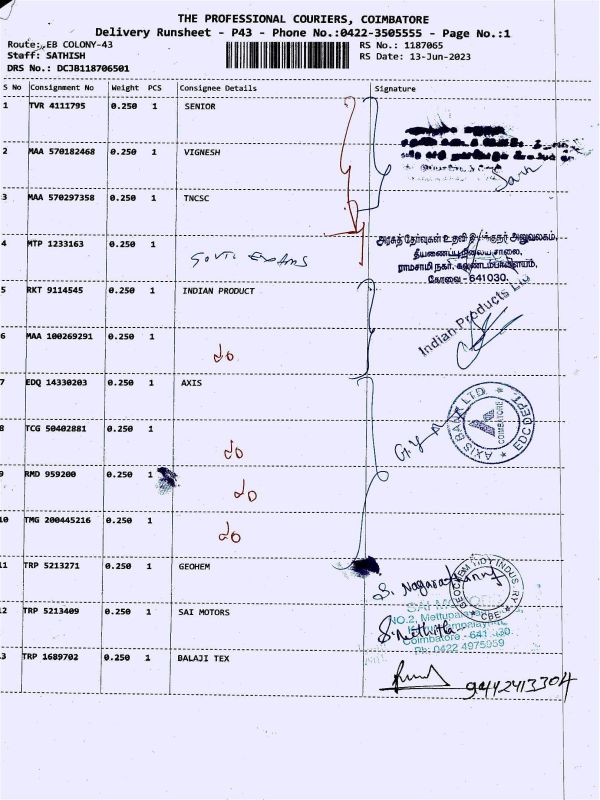 THE PROFESSIONAL COURIERS, COIMBATORE
Delivery Runsheet - P43 - Phone No.:0422-3505555 - Page No.:1
Route: EB COLONY-43 RS No.: 1187065
Staff: SATHISH RS Date: 13-Jun-2023
DRS No.: DCJB118706501
S No Consignment No Weight PCS Consignee Details Signature
1 TVR 4111795 0.250 1 SENIOR
2 MAA 570182468 0.250 1 VIGNESH
3 MAA 570297358 0.250 1 TNCSC
4 MTP 1233163 0.250 1 Govt. Exams
அரசுத் தேர்வுகள் உதவி இயக்குநர் அலுவலகம்,
ராமசாமி நகர், கவுண்டம்பாளையம்,
கோவை - 641030.
5 RKT 9114545 0.250 1 INDIAN PRODUCT
Indian Products Ltd
6 MAA 100269291 0.250 1 do
7 EDQ 14330203 0.250 1 AXIS
AXIS BANK LTD. COIMBATORE EDC DEPT.
8 TCG 50402881 0.250 1 do
9 RMD 959200 0.250 1 do
10 TMG 200445216 0.250 1 do
11 TRP 5213271 0.250 1 GEOHEM
INDUSTRY CBE
12 TRP 5213409 0.250 1 SAI MOTORS
SAI
NO.2, Mettupalayam
Coimbatore - 641
Ph: 0422 4975059
3 TRP 1689702 0.250 1 BALAJI TEX
9442413304